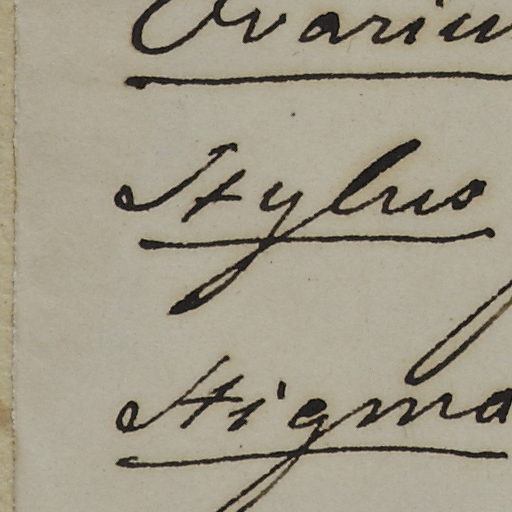 Ovariu
Stylus
Stigma